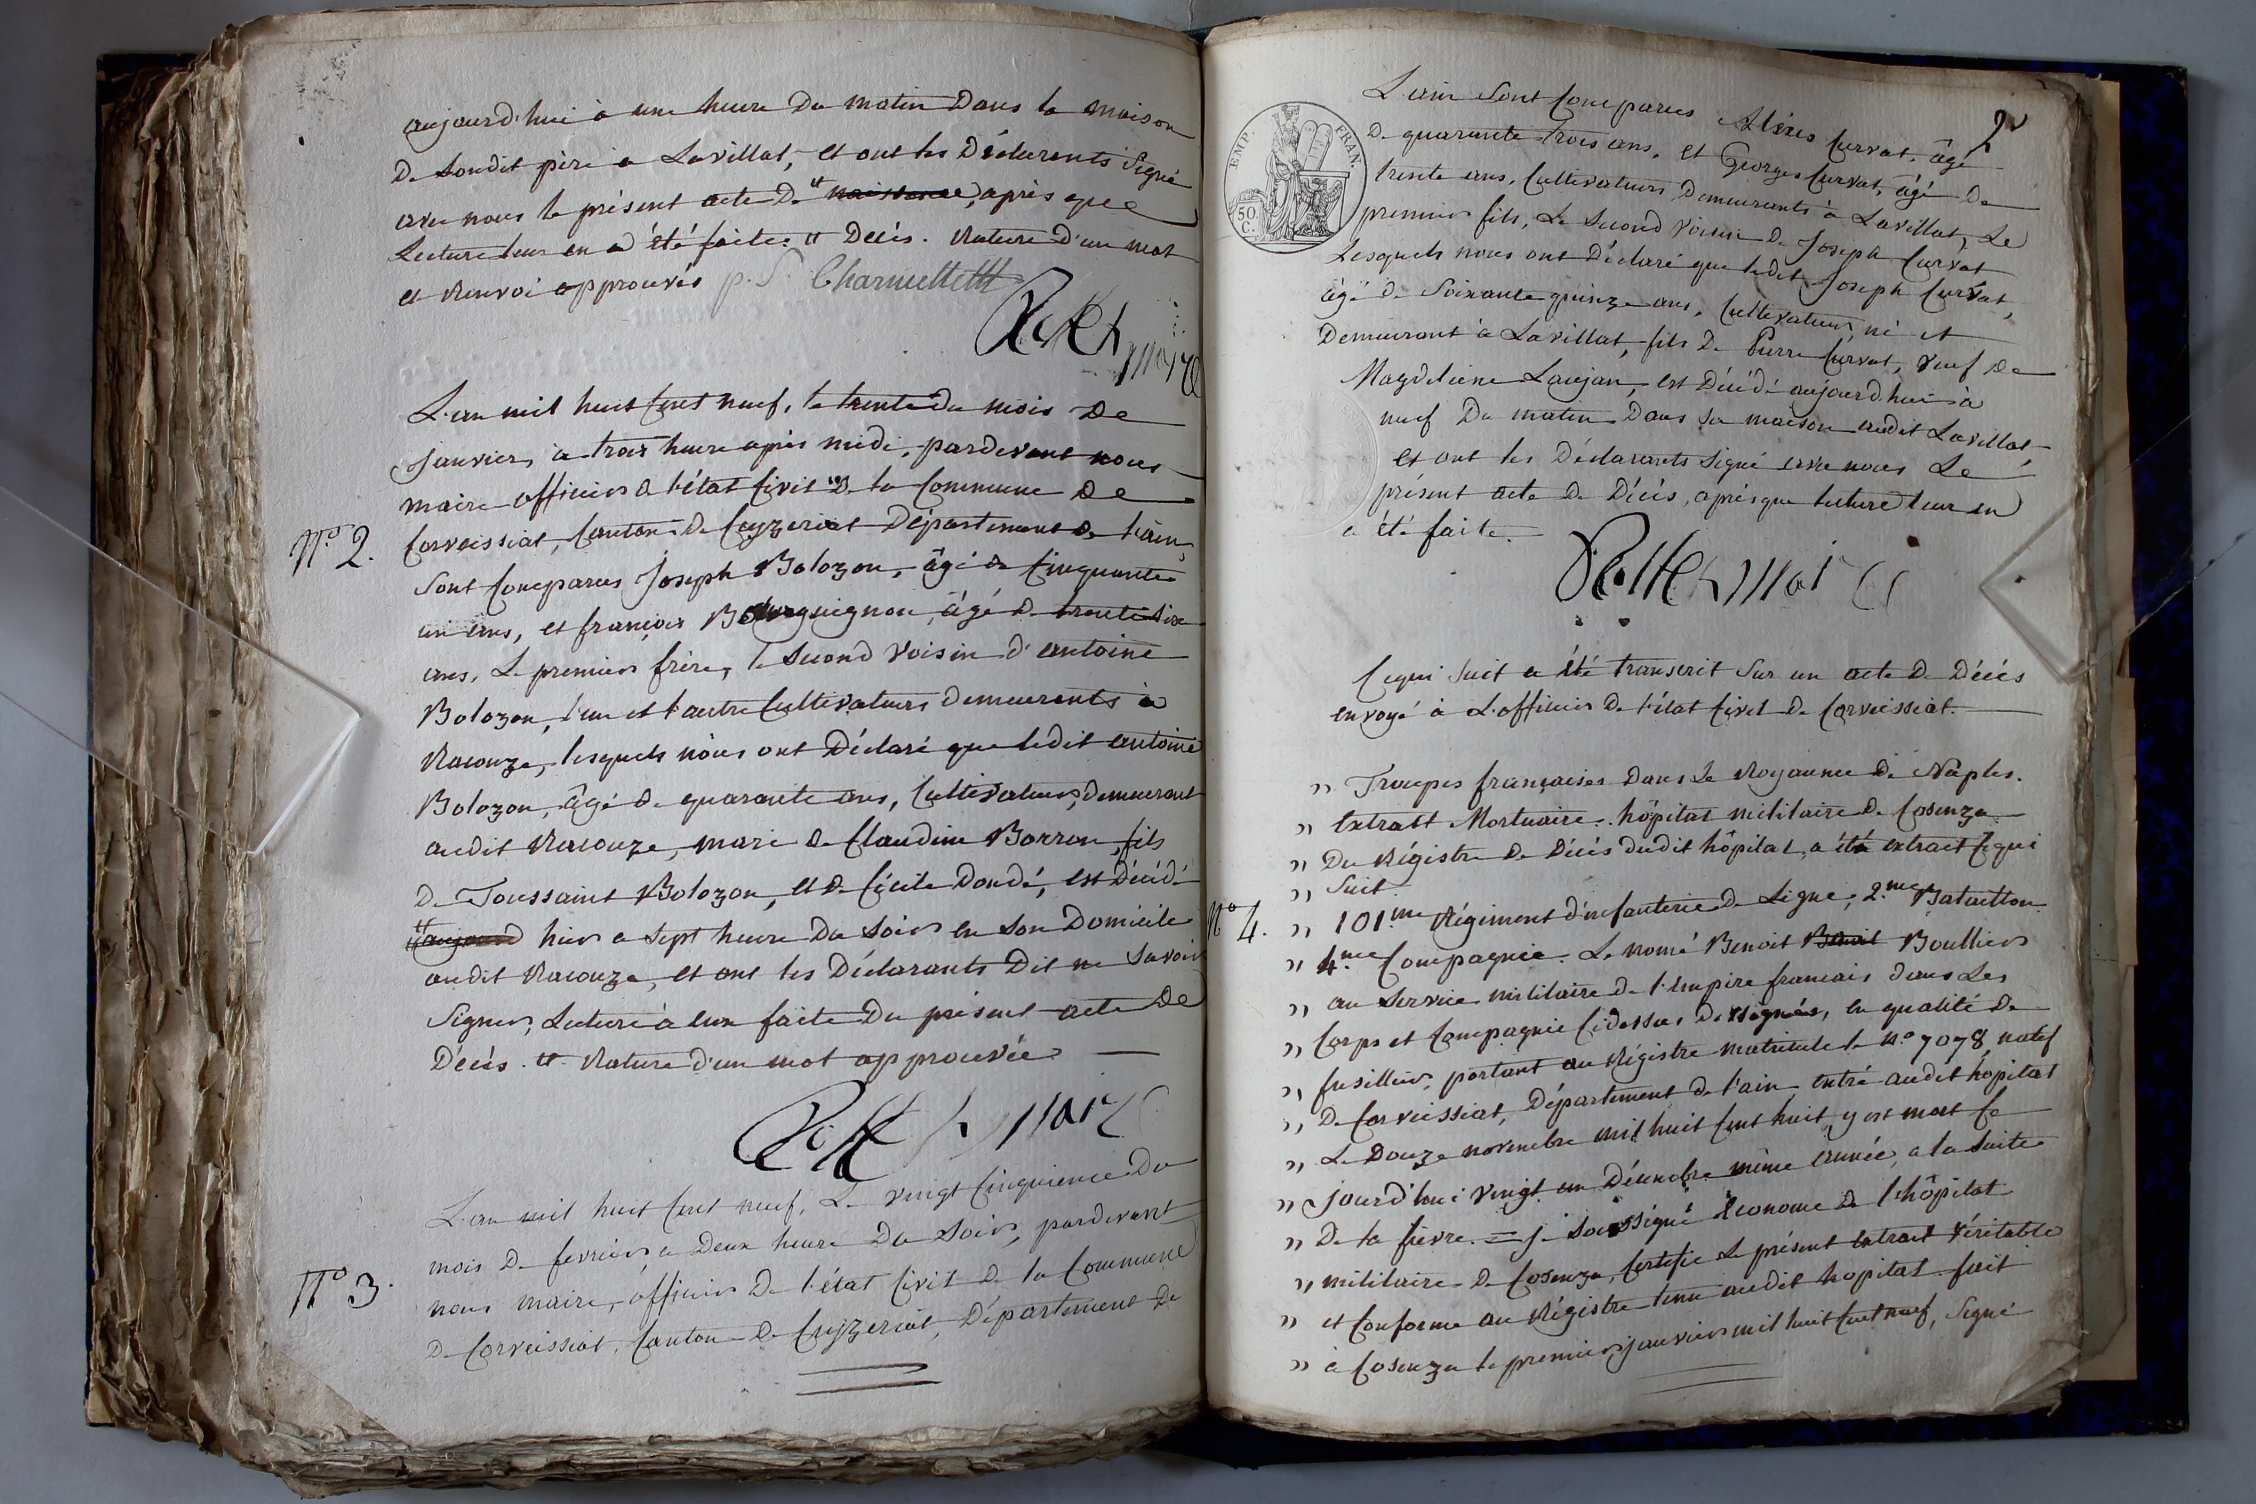 aujourd'hui à une heure du matin dans la maison
de sondit père a Lavillat, et ont les déclarants signé
avec nous le présent acte de # naissance, après que
Lecture leur en a été faite. # Décès. Rature d'un mot
et renvoi approuvés p. J. Charnullet
maire
L'an mil huit cent neuf, le trente du mois de
janvier, à trois heure après midi, pardevant nous
maire officier de l'état civil de la Commune de
N.o 2.
Corveissiat, Canton de Ceyzeriat Département de l'ain,
sont comparus Joseph Bolozon, âgé de cinquante
un ans, et françois Bourguignon, âgé de trente six
ans, Le premier frère, le second voisin d'antoine
Bolozon, l'un et l'autre cultivateurs demeurants à
Racouze, lesquels nous ont déclaré que ledit antoine
Bolozon, âgé de quarante ans, cultivateur, demeurant
audit Racouze, mari de Claudine Borron, fils
de Toussaint Bolozon, et de Cécile Dondé, est décédé
# aujourd hier a sept heure du soir en son domicile
audit Racouze, et ont les déclarants dit ne savoir
signer, Lecture à eux faite du présent acte de
Décès. # Rature d'un mot approuvée
maire
L'an mil huit cent neuf, Le vingt cinquieme du
mois de fevrier, a deux heure du soir, pardevant
N.o 3.
nous maire, officier de l'état civil de la Commune
de Corveissiat, Canton de Ceyzeriat, Département de
2
L'ain sont comparus Alexis Curvat, âgé
de quarante trois ans, et Georges Curvat, âgé de
trente ans, cultivateurs demeurants à Lavillat, Le
premier fils, Le second voisin de Joseph Curvat
Lesquels nous ont déclaré que ledit Joseph Curvat,
âgé de soixante quinze ans, cultivateur, né et
demeurant à Lavillat, fils de Pierre Curvat, veuf de
Magdeleine Laujan, est décédé aujourd'hui à
neuf du matin dans sa maison audit Lavillat,
et ont les déclarants signé avec nous Le
présent acte de décès, après que lecture leur en
a été faite.
maire
EMP. FRAN.
50 C.
Cequi suit a été transcrit sur un acte de Décès
envoyé à L'officier de l'état civil de Corveissiat.
" Troupes françaises dans le Royaume de Naples.
" Extrait Mortuaire. hôpital militaire de Cosenza.
" Du Régistre de Décès dudit hôpital, a été extrait cequi
" suit.
N.o 4.
" 101.me Régiment d'infanterie de Ligne, 2.me Bataillon
" 4.me Compagnie. Le nomé Benoit Benoit Boullier
" au service militaire de l'Empire francais dans Les
" Corps et Compagnie cidessus designés, en qualité de
" fusillier, portant au Régistre matricule le N.o 7078, natif
" de Corveissiat, Département de l'ain, entré audit hôpital
" Le Douze novembre mil huit cent huit, y est mort ce
" jourd'hui vingt un Décembre même année, a la suite
" De la fievre. = je soussigné Econome de l'hôpital
" militaire de Cosenza, Certifie Le présent extrait véritable
" et conforme au Régistre tenu audit hopital. fait
" à Cosenza le premier janvier mil huit cent neuf, signé